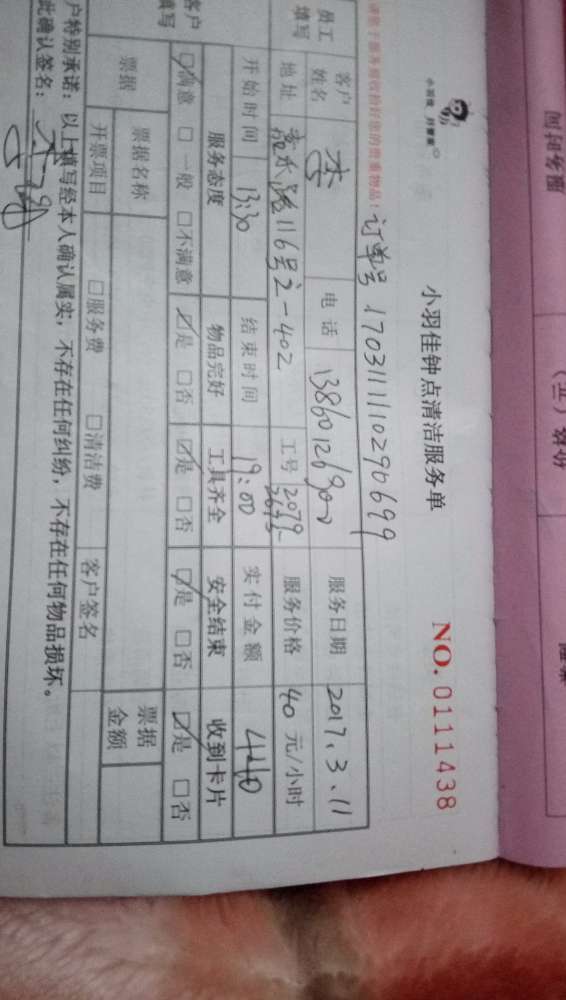 小羽佳 好管家
小羽佳钟点清洁服务单
NO.0111438
订单号 1703111110290699
员工填写
客户姓名 李 电话 服务日期 2017.3.11
地址 116号之-402 工号 2079 服务价格 40元/小时
开始时间 13:30 结束时间 19:00 实付金额 440
客户填写
服务态度 物品完好 工具齐全 安全结束 收到卡片
☑满意 □一般 □不满意 ☑是 □否 ☑是 □否 ☑是 □否 ☑是 □否
票据 票据名称 票据金额
开票项目 □服务费 □清洁费 客户签名
户特别承诺：以上填写经本人确认属实，不存在任何纠纷，不存在任何物品损坏。
此确认签名：